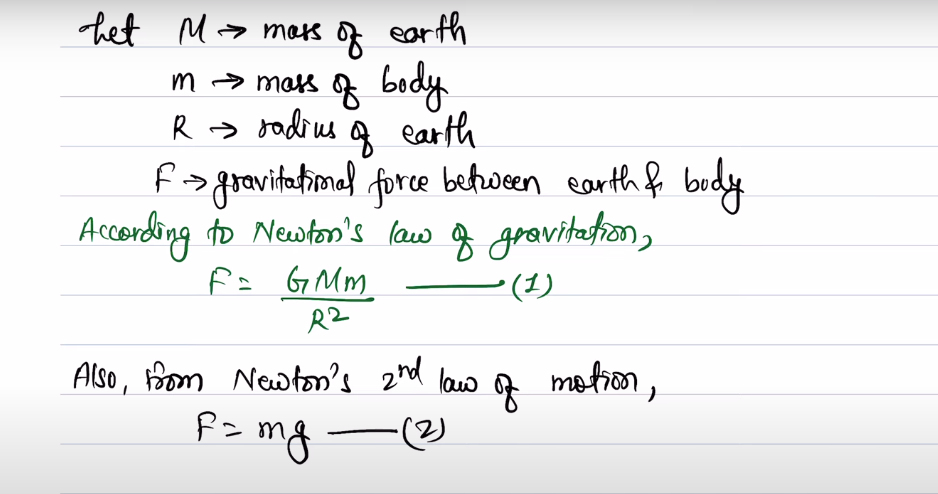 Let M → mass of earth
m → mass of body
R → radius of earth
F → gravitational force between earth & body
According to Newton's law of gravitation,
F = GMm —— (1)
R²
Also, from Newton's 2nd law of motion,
F = mg —— (2)